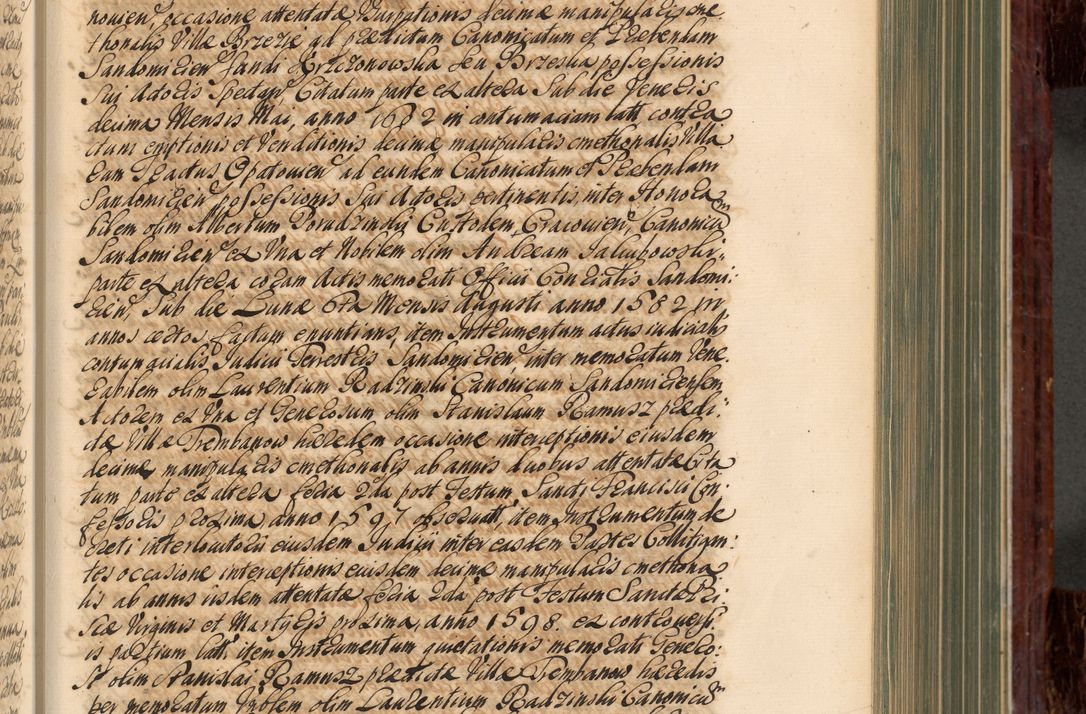 novien: occasione attentatæ Usurpationis decimæ manipularis cme
thonalis Villæ Brzezie ad prædictum Canonicatum et Præbendam
Sandomirien: fundi Krzczonowska seu Brzeska possessionis
sui Actoris spectan: Citatum parte ex altera sub die Veneris
decima Mensis Mai, anno 1682 in contumaciam latt, contra
ctum emptionis et Venditionis decimæ manipularis cmethonalis Villa
rum Tractus Opatovien: ad eundem Canonicatum et Præbendam
Sandomirien: possessionis sui Actoris pertinentis, inter Honora
bilem olim Albertum Porudzinski Custodem Cracovien: Canonicum
Sandomirien: ex Una et Nobilem olim Andream Jakubowski
parte ex altera coram Actis memorati Officii Consularis Sandomi:
rien: sub die Lunæ 6ta Mensis Augusti anno 1582 in
annos certos factum enuntians, item Instrumentum actus iudicialis
contumacialis Judicii Terrestris Sandomirien: inter memoratum Vene
rabilem olim Laurentium Radzinski Canonicum Sandomiriensem
Actorem ex Una et Generosum olim Stanislaum Ramusz prædi:
ctæ Villæ Trembanow hæredem occasione interceptionis eiusdem
decimæ manipularis cmethonalis ab annis duobus attentatæ Cita
tum parte ex altera feria 2da post Festum Sancti Francisci Con:
fessoris proxima, anno 1597 observatt, item Instrumentum de
creti interlocutorii eiusdem Judicii inter easdem Partes Collitigan:
tes occasione interceptionis eiusdem decimæ manipularis cmethona
lis ab annis iisdem attentatæ feria 2da post Festum Sanctæ Pri
scæ Virginis et Martyris proxima, anno 1598. ex controversi
is partium latt, item Instrumentum quietationis memorati Genero:
si olim Stanislai Ramusz prædictæ Villæ Trembanow hæredis
per memoratum Vrblem olim Laurentium Radzinski Canonicum